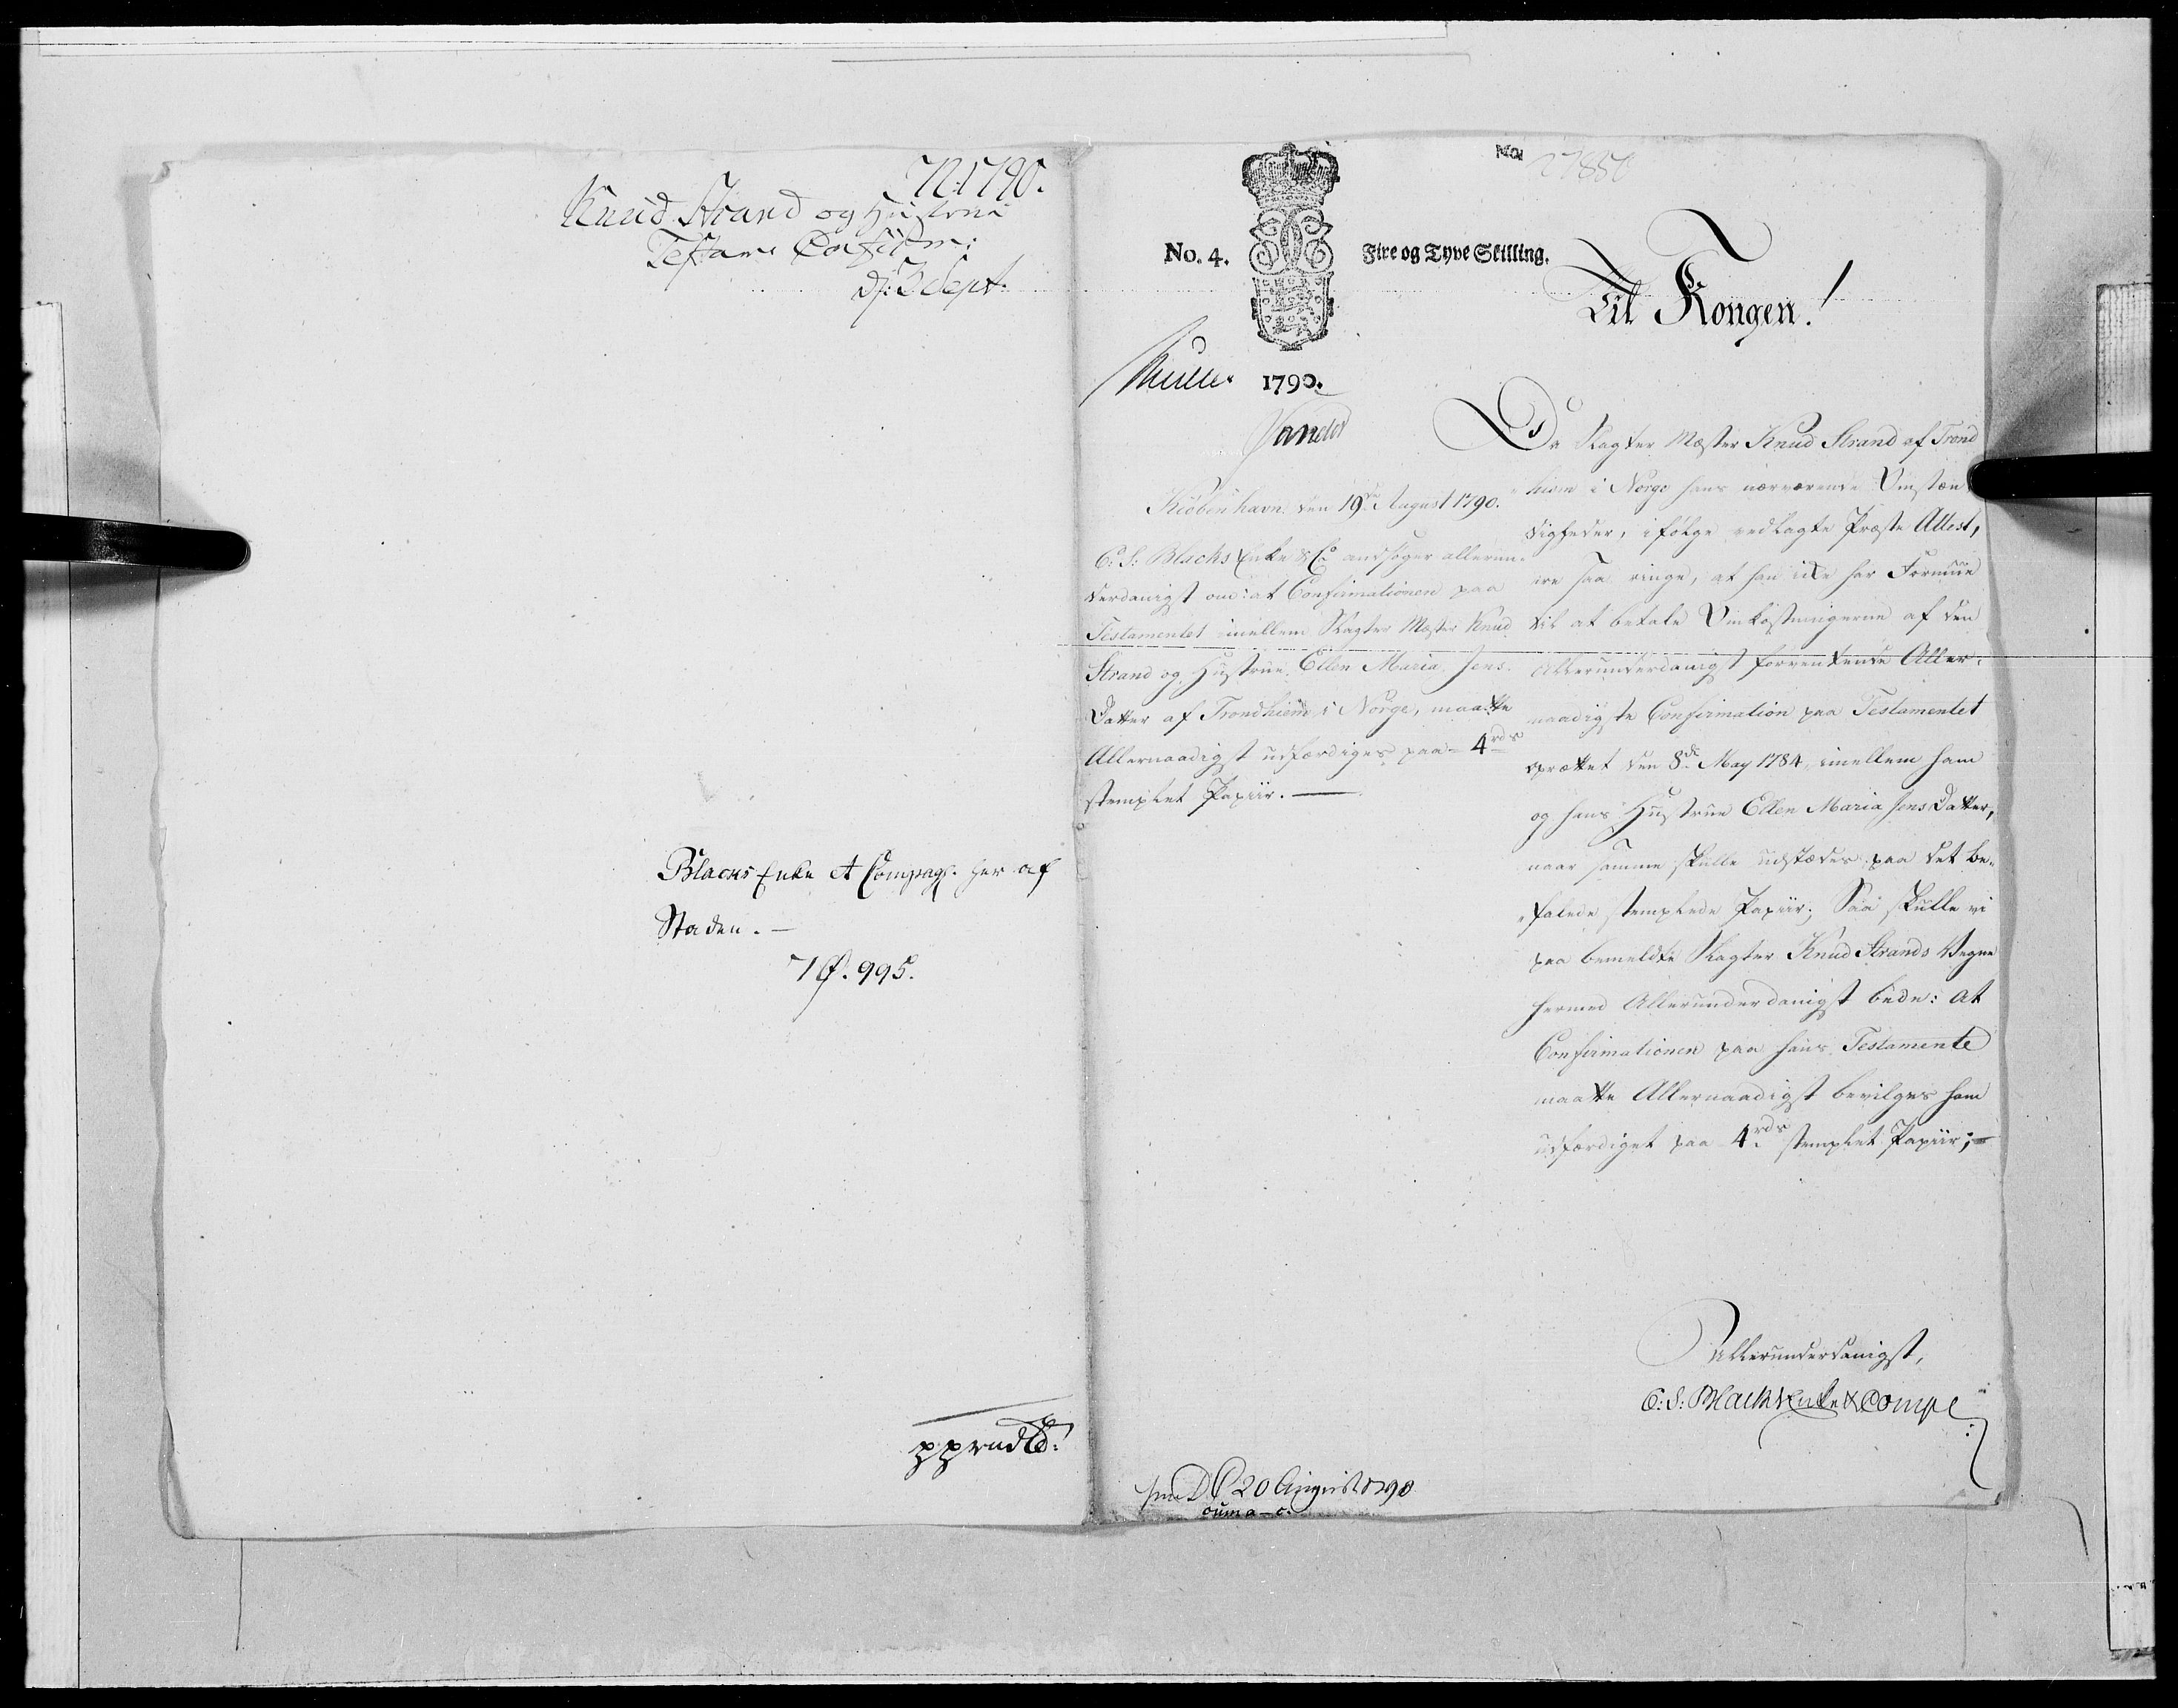 N. 1790.
Knud Strand og Hustrue
Testam: Confirm:
d: 3 Sept.
Blacks Enke et Compag. her af
Staden. —
No
27850
No. 4.
Fire og Tyve Skilling.
Til Kongen!
1790.
Kiøbenhavn den 19de August 1790.
C: S: Blachs Enke & Co andsøger allerun-
derdanigst om: at Confirmationen paa
Testamentet imellem Slagter Mæster Knud
Strand og Hustrue Ellen Maria Jens
Datter af Trondhiem i Norge, maatte
Allernaadigst udfærdiges paa 4rds
stemplet Papiir. —
Da Slagter Mæster Knud Strand af Trond
hiem i Norge hans nærværende Omstæn
digheder, ifølge vedlagte Præste Attest,
ere saa ringe, at han ikke har Formue
til at betale Omkostningerne af den
Allerunderdanigst forventende Aller-
naadigste Confirmation paa Testamentet
oprættet den 8de May 1784 imellem ham
og hans Hustrue Ellen Maria Jens Datter,
naar samme skulle udstædes paa det be-
falede stemplede Papiir; Saa skulle vi
paa bemeldte Slagter Knud Strands Vegne
hermed Allerunderdanigst bede: at
Confirmationen paa hans Testamente
maatte Allernaadigst bevilges ham
udfærdiget paa 4rds stemplet Papiir; —
Allerunderdanigst,
C: S: Blachs Enke & Comp
20 August 1790